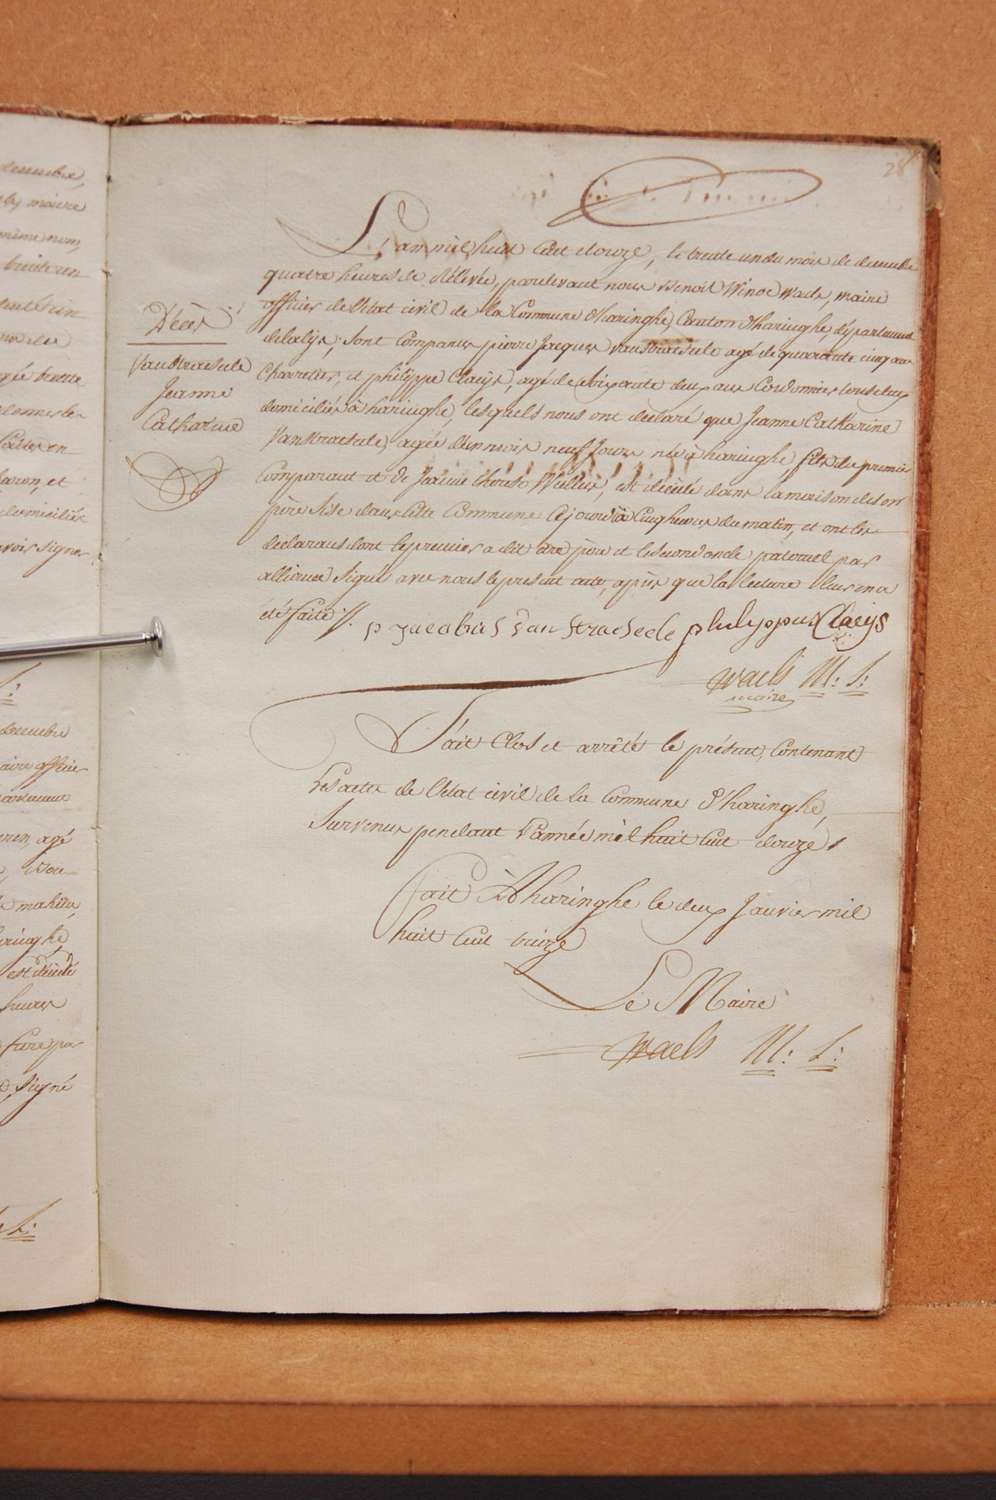 28
L'an mil huit cent douze, le trente un du mois de decembre
quatre heures de rélévée, pardevant nous Benoit Winoc Waels, maire
officier de l'état civil de la Commune d'haringhe, Canton d'haringhe, département
delalys, sont comparus pierre Jacques vanstraesele agé de quarante cinq ans
Charretier, et philippe Claeÿs, agé de soixante deux ans Cordonnier tous deux
domiciliés à haringhe, lesquels nous ont declaré que Jeanne Catharine
Vanstraesele, agée d'un mois neuf Jours née à haringhe fille du premier
Comparant et de Jeanne therese, est décédé dans la maison de son
père sise dans cette Commune Cejourd'hui à Cinq heures du matin, et ont les
declarans dont le premier a dit être père et le second oncle paternel par
alliance signé avec nous le présent acte, après que la lecture leur en a
été faite /.
Décès
Vanstraesele
Jeanne
Catharine
p Jacobus Van straesele philyppus Claeijs
Waels M: L:
maire
Fait Clos et arrêté le présent, Contenant
les actes de l'état civil de la Commune d'haringhe,
Survenus pendant l'année mil huit Cent douze
fait à haringhe le deux Janvier mil
huit Cent treize
Le Maire
Waels M: L:
decembre,
maire
même nom,
trente un
trente
et
domiciliés
signer
L:
decembre
maire officier
agé
haringhe,
est décédé
heures
signé
L: